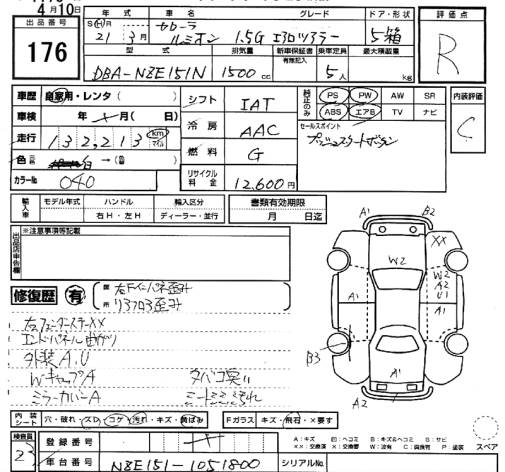 4月10日
出品番号
176
年式 車名 グレード ドア・形状
S H 21年 3月 カローラ ルミオン 1.5G エアロツアラー 5箱
型式 排気量 新車保証書 乗車定員 最大積載量
DBA-NZE151N 1500cc 有無記入 5人 kg
評価点
R
車歴 自家用・レンタ( )
車検 年 月( 日)
走行 132,213 km マイル
色 元色 白 → 色
カラーNo. 040
シフト IAT
冷房 AAC
燃料 G
リサイクル料金 12,600円
純正のみ PS PW AW SR
ABS エアB TV ナビ
セールスポイント
プッシュスタートボタン
内装評価
C
輸入車 モデル年式 ハンドル 輸入区分
右H・左H ディーラー・並行
書類有効期限
月 日迄
出品店申告欄 ※注意事項等記載
修復歴 有 箇所
右Fインパネ歪み
リアフロア歪み
右フェンダーステーXX
エンドパネル曲がり
外装A.U
WキャップA タバコ臭い
ミラーカバーA シートシミ、汚れ
A1 B2
XX
W2
A1 W2 A2 U1
A1 A1
B3
A1
A2
内装シート 穴・破れ・スレ・コゲ・汚れ・キズ・黄ばみ Fガラス キズ・飛石・×要す
スペア
A:キズ B:キズ&ヘコミ S:サビ
XX:交換済 X:要交換 W:波有 C:腐食有 P:塗装
検査員 23
登録番号
車台番号 NZE151-1051800 シリアルNo.